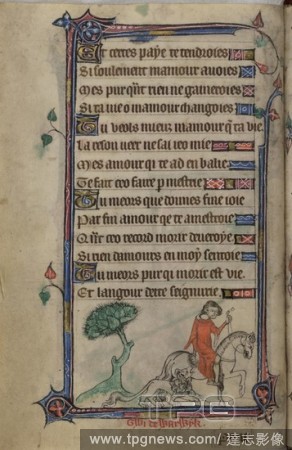 Et terres paye te tendroies
Si soulement mamour avoies
Mes pur qͥr rien ne gaineroies
Si ta vie o mamour changoies
Tu veols mieux mamour q̄ ta vie
La reson veer ne sai ieo mie
Mes amour qi te ad en baliee
Te fait ceo faire p mestrie
Tu meors que dounes fine ioie
Par fin amour qe te amestroie
Qͥr ceo record morir devroye
Si rien damours en moy sentoie
Tu meors pur qi morir est vie
Et langour dette seignurie
Gwi de warwyk
TPG
www.tpgnews.com / 達志影像